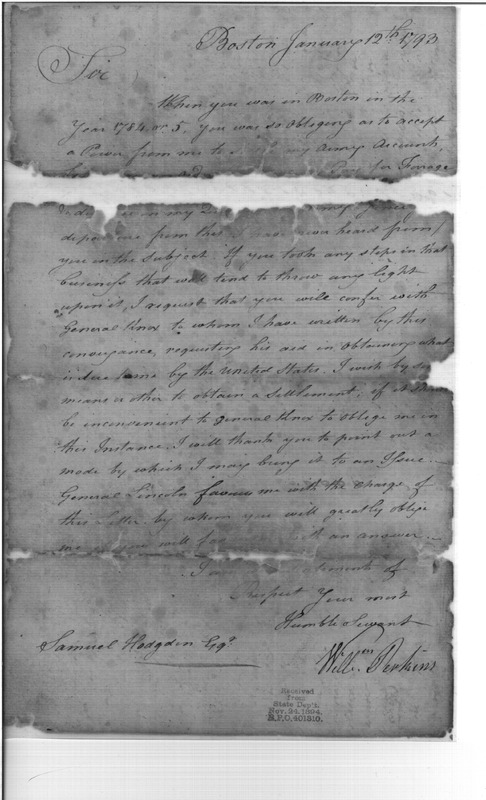 Boston January 12th 1793
Sir
When you was in Boston in the
Year 1784 or 5, you was so obliging as to accept
a Power from me to my Army Accounts,
for Forrage
in my
departure from this never heard from
you on the Subject. If you took any steps in that
business that will tend to throw any light
upon it, I request that you will confer with
General Knox to whom I have written by this
conveyance, requesting his aid in Obtaining what
is due to me by the United States. I wish by some
means or other to obtain a Settlement; if it
be inconvenient to General Knox to oblige me in
this Instance, I will thank you to point out a
mode by which I may bring it to an Issue.
General Lincoln favours me with the Charge of
this Letter by whom you will greatly oblige
me will an answer.
I
Respect Your most
Humble Servant
Samuel Hodgdon Esqr
Willm Perkins
Received
from
State Dep't.
Nov. 24, 1894.
R.P.O. 401310.